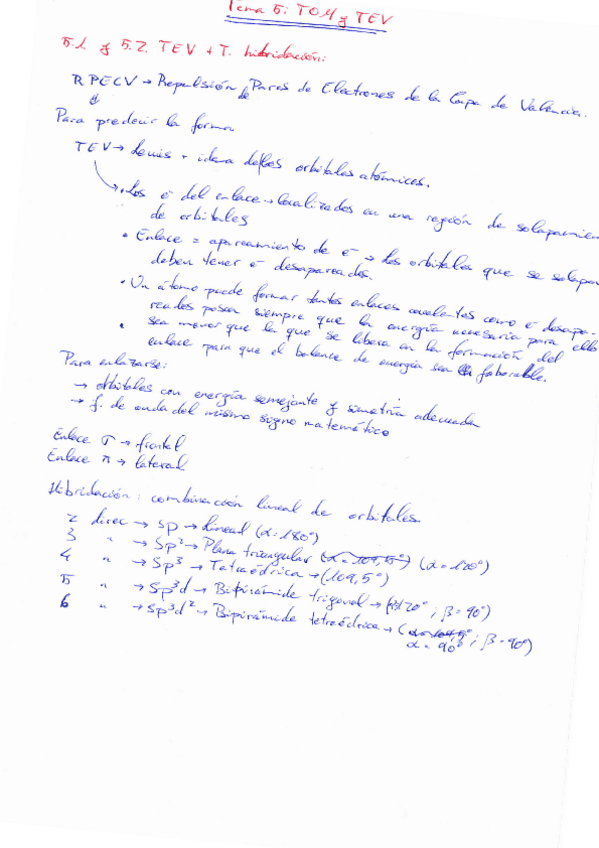 Tema 5: TOM y TEV
5.1. y 5.2. TEV + T. hibridación:
RPECV → Repulsión de Pares de Electrones de la Capa de Valencia.
Para predecir la forma
TEV → Lewis + idea de los orbitales atómicos.
• Los e⁻ del enlace → localizados en una región de solapamien
de orbitales
• Enlace = apareamiento de e⁻ → Los orbitales que se solapan
deben tener e⁻ desapareados.
• Un átomo puede formar tantos enlaces covalentes como e⁻ desapa-
reados posea siempre que la energía necesaria para ello
sea menor que la que se libera en la formación del
enlace para que el balance de energía sea favorable.
Para enlazarse:
→ orbitales con energía semejante y simetría adecuada
→ f. de onda del mismo signo matemático
Enlace σ → frontal
Enlace π → lateral
Hibridación: combinación lineal de orbitales.
2 direc → sp → Lineal (α=180°)
3 " → sp² → Plana triangular (α=109,5°) (α=120°)
4 " → sp³ → Tetraédrica → (109,5°)
5 " → sp³d → Bipirámide trigonal → (α120°; β=90°)
6 " → sp³d² → Bipirámide tetraédrica → ( ; β=90°)
α=90°